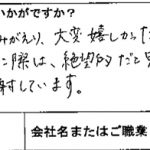 いかがですか?
みがえり、大変嬉しかった
に際は、絶望的だと
謝しています。
会社名またはご職業